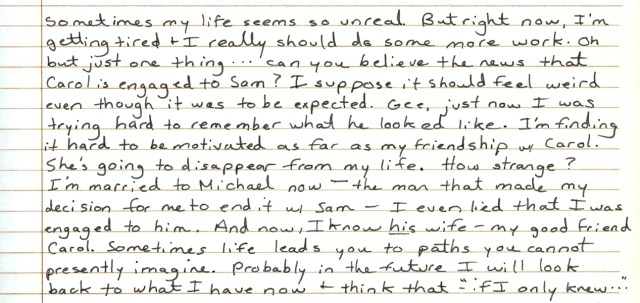 Sometimes my life seems so unreal. But right now, I'm
getting tired + I really should do some more work. Oh
but just one thing... can you believe the news that
Carol is engaged to Sam? I suppose it should feel weird
even though it was to be expected. Gee, just now I was
trying hard to remember what he looked like. I'm finding
it hard to be motivated as far as my friendship w/ Carol.
She's going to disappear from my life. How strange?
I'm married to Michael now — the man that made my
decision for me to end it w/ Sam — I even lied that I was
engaged to him. And now, I know his wife — my good friend
Carol. Sometimes life leads you to paths you cannot
presently imagine. Probably in the future I will look
back to what I have now + think that "if I only knew..."